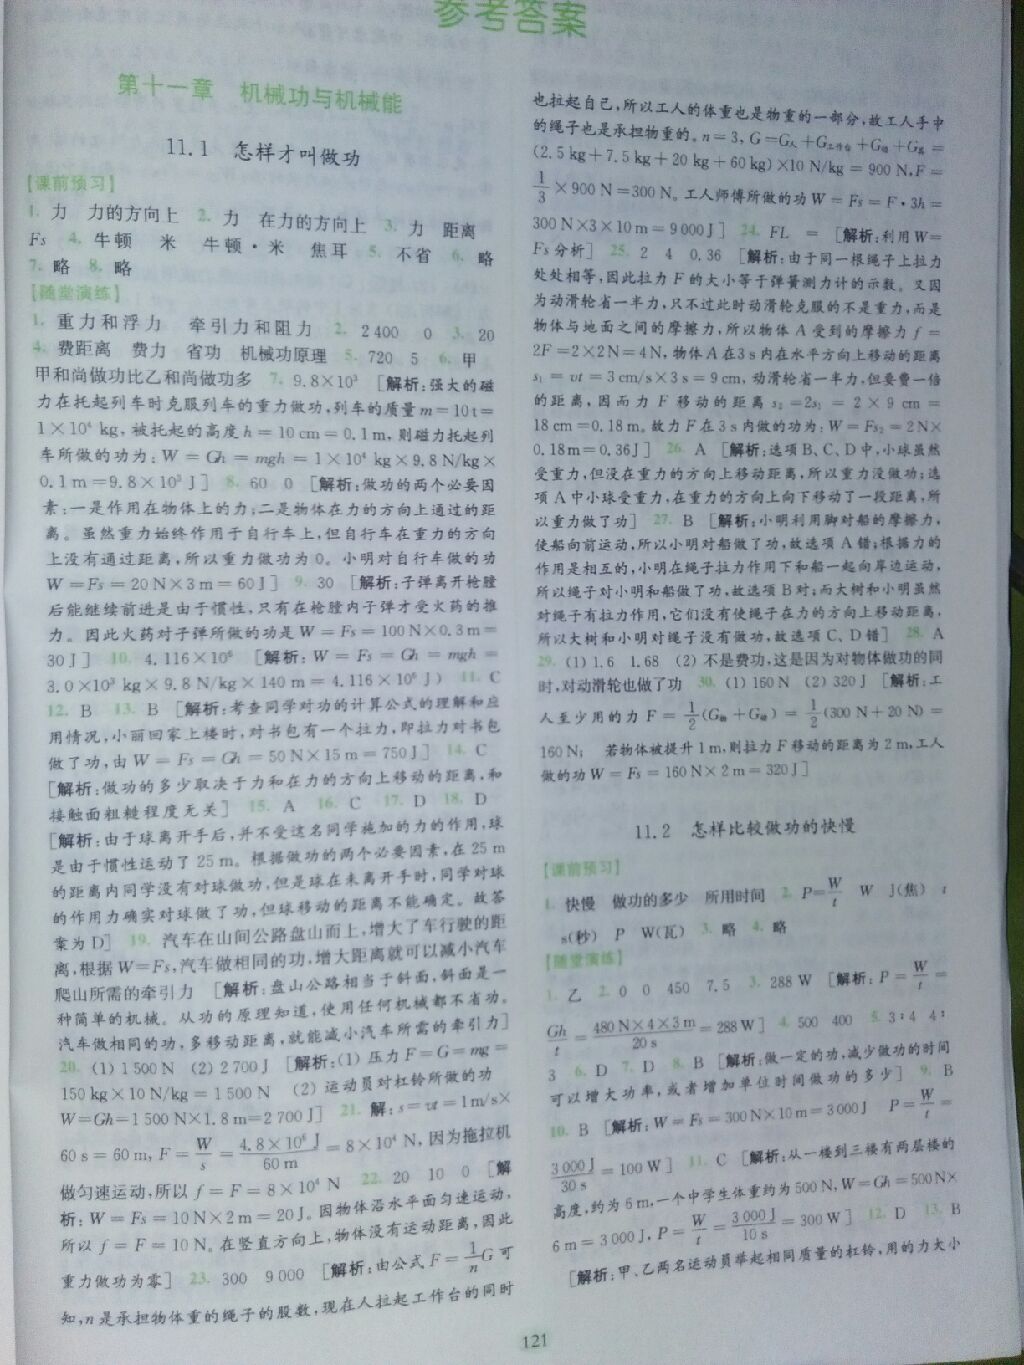 参考答案
第十一章 机械功与机械能
11.1 怎样才叫做功
【课前预习】
1. 力 力的方向上 2. 力 在力的方向上 3. 力 距离
Fs 4. 牛顿 米 牛顿·米 焦耳 5. 不省 6. 略
7. 略 8. 略
【随堂演练】
1. 重力和浮力 牵引力和阻力 2. 2 400 0 3. 20
4. 费距离 费力 省功 机械功原理 5. 720 5 6. 甲
甲和尚做功比乙和尚做功多 7. 9.8×10³ [解析:强大的磁
力在托起列车时克服列车的重力做功,列车的质量 m=10 t=
1×10⁴ kg,被托起的高度 h=10 cm=0.1 m,则磁力托起列
车所做的功为:W=Gh=mgh=1×10⁴ kg×9.8 N/kg×
0.1 m=9.8×10³ J] 8. 60 0 [解析:做功的两个必要因
素:一是作用在物体上的力;二是物体在力的方向上通过的距
离。虽然重力始终作用于自行车上,但自行车在重力的方向
上没有通过距离,所以重力做功为0。小明对自行车做的功
W=Fs=20 N×3 m=60 J] 9. 30 [解析:子弹离开枪膛
后能继续前进是由于惯性,只有在枪膛内子弹才受火药的推
力。因此火药对子弹所做的功是 W=Fs=100 N×0.3 m=
30 J] 10. 4.116×10⁶ [解析:W=Fs=Gh=mgh=
3.0×10³ kg×9.8 N/kg×140 m=4.116×10⁶ J) 11. C
12. B 13. B [解析:考查同学对功的计算公式的理解和应
用情况,小丽回家上楼时,对书包有一个拉力,即拉力对书包
做了功,由 W=Fs=Gh=50 N×15 m=750 J] 14. C
[解析:做功的多少取决于力和在力的方向上移动的距离,和
接触面粗糙程度无关] 15. A 16. C 17. D 18. D
[解析:由于球离开手后,并不受这名同学施加的力的作用,球
是由于惯性运动了 25 m。根据做功的两个必要因素,在 25 m
的距离内同学没有对球做功,但是球在未离开手时,同学对球
的作用力确实对球做了功,但球移动的距离不能确定。故答
案为 D] 19. 汽车在山间公路盘山而上,增大了车行驶的距
离,根据 W=Fs,汽车做相同的功,增大距离就可以减小汽车
爬山所需的牵引力 [解析:盘山公路相当于斜面,斜面是一
种简单的机械。从功的原理知道,使用任何机械都不省功。
汽车做相同的功,多移动距离,就能减小汽车所需的牵引力]
20. (1) 1 500 N (2) 2 700 J [解析:(1) 压力 F=G=mg=
150 kg×10 N/kg=1 500 N (2) 运动员对杠铃所做的功
W=Gh=1 500 N×1.8 m=2 700 J] 21. 解:s=vt=1 m/s×
60 s=60 m,F=W/s=4.8×10⁶ J/60 m=8×10⁴ N,因为拖拉机
做匀速运动,所以 f=F=8×10⁴ N 22. 20 10 0 [解
析:W=Fs=10 N×2 m=20 J。因物体沿水平面匀速运动,
所以 f=F=10 N。在竖直方向上,物体没有运动距离,因此
重力做功为零] 23. 300 9 000 [解析:由公式 F=1/n G 可
知,n 是承担物体重的绳子的股数,现在人拉起工作台的同时
也拉起自己,所以工人的体重也是物重的一部分,故工人手中
的绳子也是承担物重的。n=3,G=G人+G工作台+G动+G其=
(2.5 kg+7.5 kg+20 kg+60 kg)×10 N/kg=900 N,F=
1/3×900 N=300 N。工人师傅所做的功 W=Fs=F·3h=
300 N×3×10 m=9 000 J] 24. FL = [解析:利用 W=
Fs 分析] 25. 2 4 0.36 [解析:由于同一根绳子上拉力
处处相等,因此拉力 F 的大小等于弹簧测力计的示数。又因
为动滑轮省一半力,只不过此时动滑轮克服的不是重力,而是
物体与地面之间的摩擦力,所以物体 A 受到的摩擦力 f=
2F=2×2 N=4 N,物体 A 在3 s 内在水平方向上移动的距离
s₁=vt=3 cm/s×3 s=9 cm,动滑轮省一半力,但要费一倍
的距离,因而力 F 移动的距离 s₂=2s₁=2×9 cm=
18 cm=0.18 m。故力 F 在 3 s 内做的功为:W=Fs₂=2 N×
0.18 m=0.36 J] 26. A [解析:选项 B、C、D 中,小球虽然
受重力,但没在重力的方向上移动距离,所以重力没做功;选
项 A 中小球受重力,在重力的方向上向下移动了一段距离,所
以重力做了功] 27. B [解析:小明利用脚对船的摩擦力,
使船向前运动,所以小明对船做了功,故选项 A 错;根据力的
作用是相互的,小明在绳子拉力作用下和船一起向岸边运动,
所以绳子对小明和船做了功,故选项 B 对;而大树和小明虽然
对绳子有拉力作用,它们没有使绳子在力的方向上移动距离,
所以大树和小明对绳子没有做功,故选项 C、D 错] 28. A
29. (1) 1.6 1.68 (2) 不是费功,这是因为对物体做功的同
时,对动滑轮也做了功 30. (1) 160 N (2) 320 J [解析:工
人至少用的力 F=1/2(G物+G动)=1/2(300 N+20 N)=
160 N; 若物体被提升 1 m,则拉力 F 移动的距离为 2 m,工人
做的功 W=Fs=160 N×2 m=320 J]
11.2 怎样比较做功的快慢
【课前预习】
1. 快慢 做功的多少 所用时间 2. P=W/t W J(焦) t
s(秒) P W(瓦) 3. 略 4. 略
【随堂演练】
1. 乙 2. 0 0 450 7.5 3. 288 W [解析:P=W/t=
Gh/t=480 N×4×3 m/20 s=288 W] 4. 500 400 5. 3∶4 4∶
3 6. D 7. D 8. B [解析:做一定的功,减少做功的时间
可以增大功率,或者增加单位时间做功的多少] 9. B
10. B [解析:W=Fs=300 N×10 m=3 000 J P=W/t=
3 000 J/30 s=100 W] 11. C [解析:从一楼到三楼有两层楼的
高度,约为 6 m,一个中学生体重约为 500 N,W=Gh=500 N×
6 m=3 000 J,P=W/t=3 000 J/10 s=300 W] 12. D 13. B
[解析:甲、乙两名运动员举起相同质量的杠铃,用的力大小
121